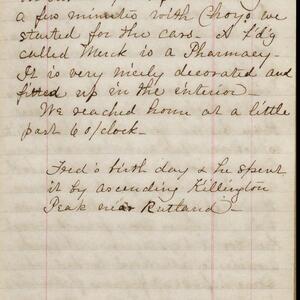 a few minutes with Choyo we
started for the cars. A b'd'g
called Merck is a Pharmacy.
It is very nicely decorated and
fitted up in the interior.
We reached home at a little
past 6 o/clock.
Fred's birth day & he spent
it by ascending Killington
Peak near Rutland.